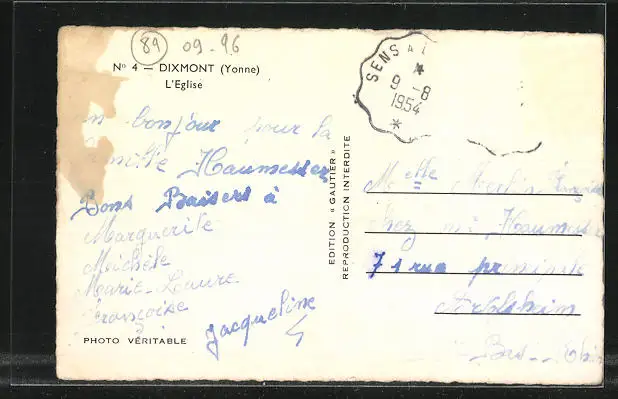 89 09-96
Nº 4 — DIXMONT (Yonne)
L'Eglise
bonjour pour la
Haumesser
Bons Baisers à
Marguerite
Michèle
Marie-Laure
Françoise
Jacqueline
PHOTO VÉRITABLE
EDITION « GAUTIER »
REPRODUCTION INTERDITE
SENS
9 -8
1954
Melle
chez mr Haumesser
71 rue principale
Bas-Rhin